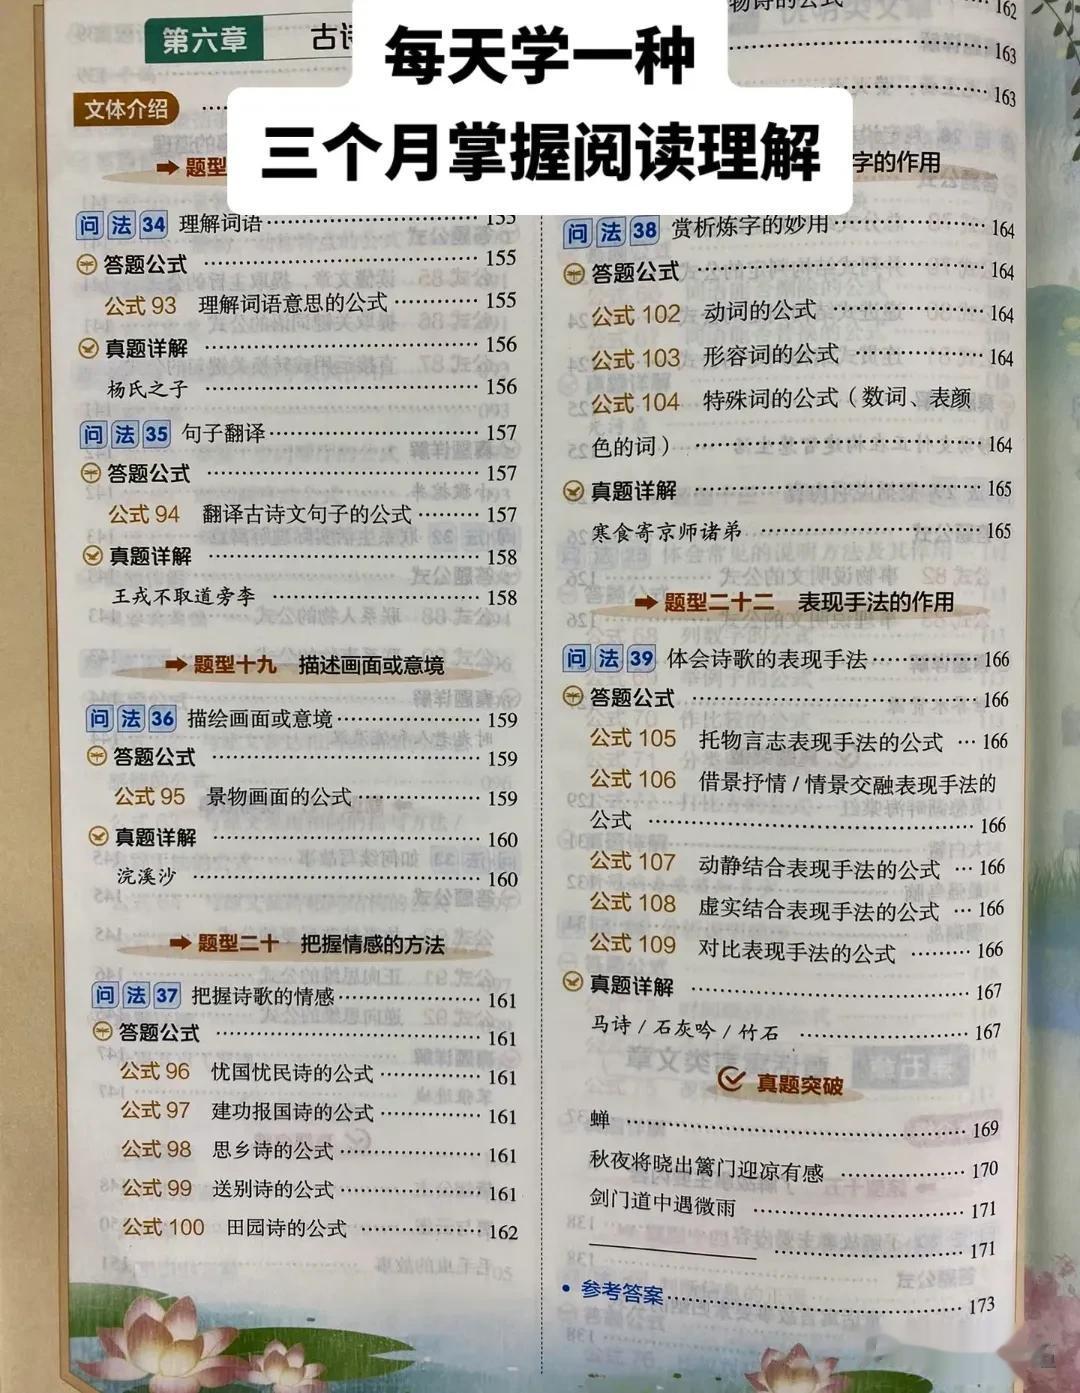 每天学一种
三个月掌握阅读理解
第六章 古诗
文体介绍
➡ 题型
问法34 理解词语 155
答题公式 155
公式 93 理解词语意思的公式 155
真题详解 156
杨氏之子 156
问法35 句子翻译 157
答题公式 157
公式 94 翻译古诗文句子的公式 157
真题详解 158
王戎不取道旁李 158
➡ 题型十九 描述画面或意境
问法36 描绘画面或意境 159
答题公式 159
公式 95 景物画面的公式 159
真题详解 160
浣溪沙 160
➡ 题型二十 把握情感的方法
问法37 把握诗歌的情感 161
答题公式 161
公式 96 忧国忧民诗的公式 161
公式 97 建功报国诗的公式 161
公式 98 思乡诗的公式 161
公式 99 送别诗的公式 161
公式 100 田园诗的公式 162
物诗的公式 162
163
163
字的作用
问法38 赏析炼字的妙用 164
答题公式 164
公式 102 动词的公式 164
公式 103 形容词的公式 164
公式 104 特殊词的公式（数词、表颜
色的词） 164
真题详解 165
寒食寄京师诸弟 165
➡ 题型二十二 表现手法的作用
问法39 体会诗歌的表现手法 166
答题公式 166
公式 105 托物言志表现手法的公式 166
公式 106 借景抒情 / 情景交融表现手法的
公式 166
公式 107 动静结合表现手法的公式 166
公式 108 虚实结合表现手法的公式 166
公式 109 对比表现手法的公式 166
真题详解 167
马诗 / 石灰吟 / 竹石 167
真题突破
蝉 169
秋夜将晓出篱门迎凉有感 170
剑门道中遇微雨 171
171
• 参考答案 173